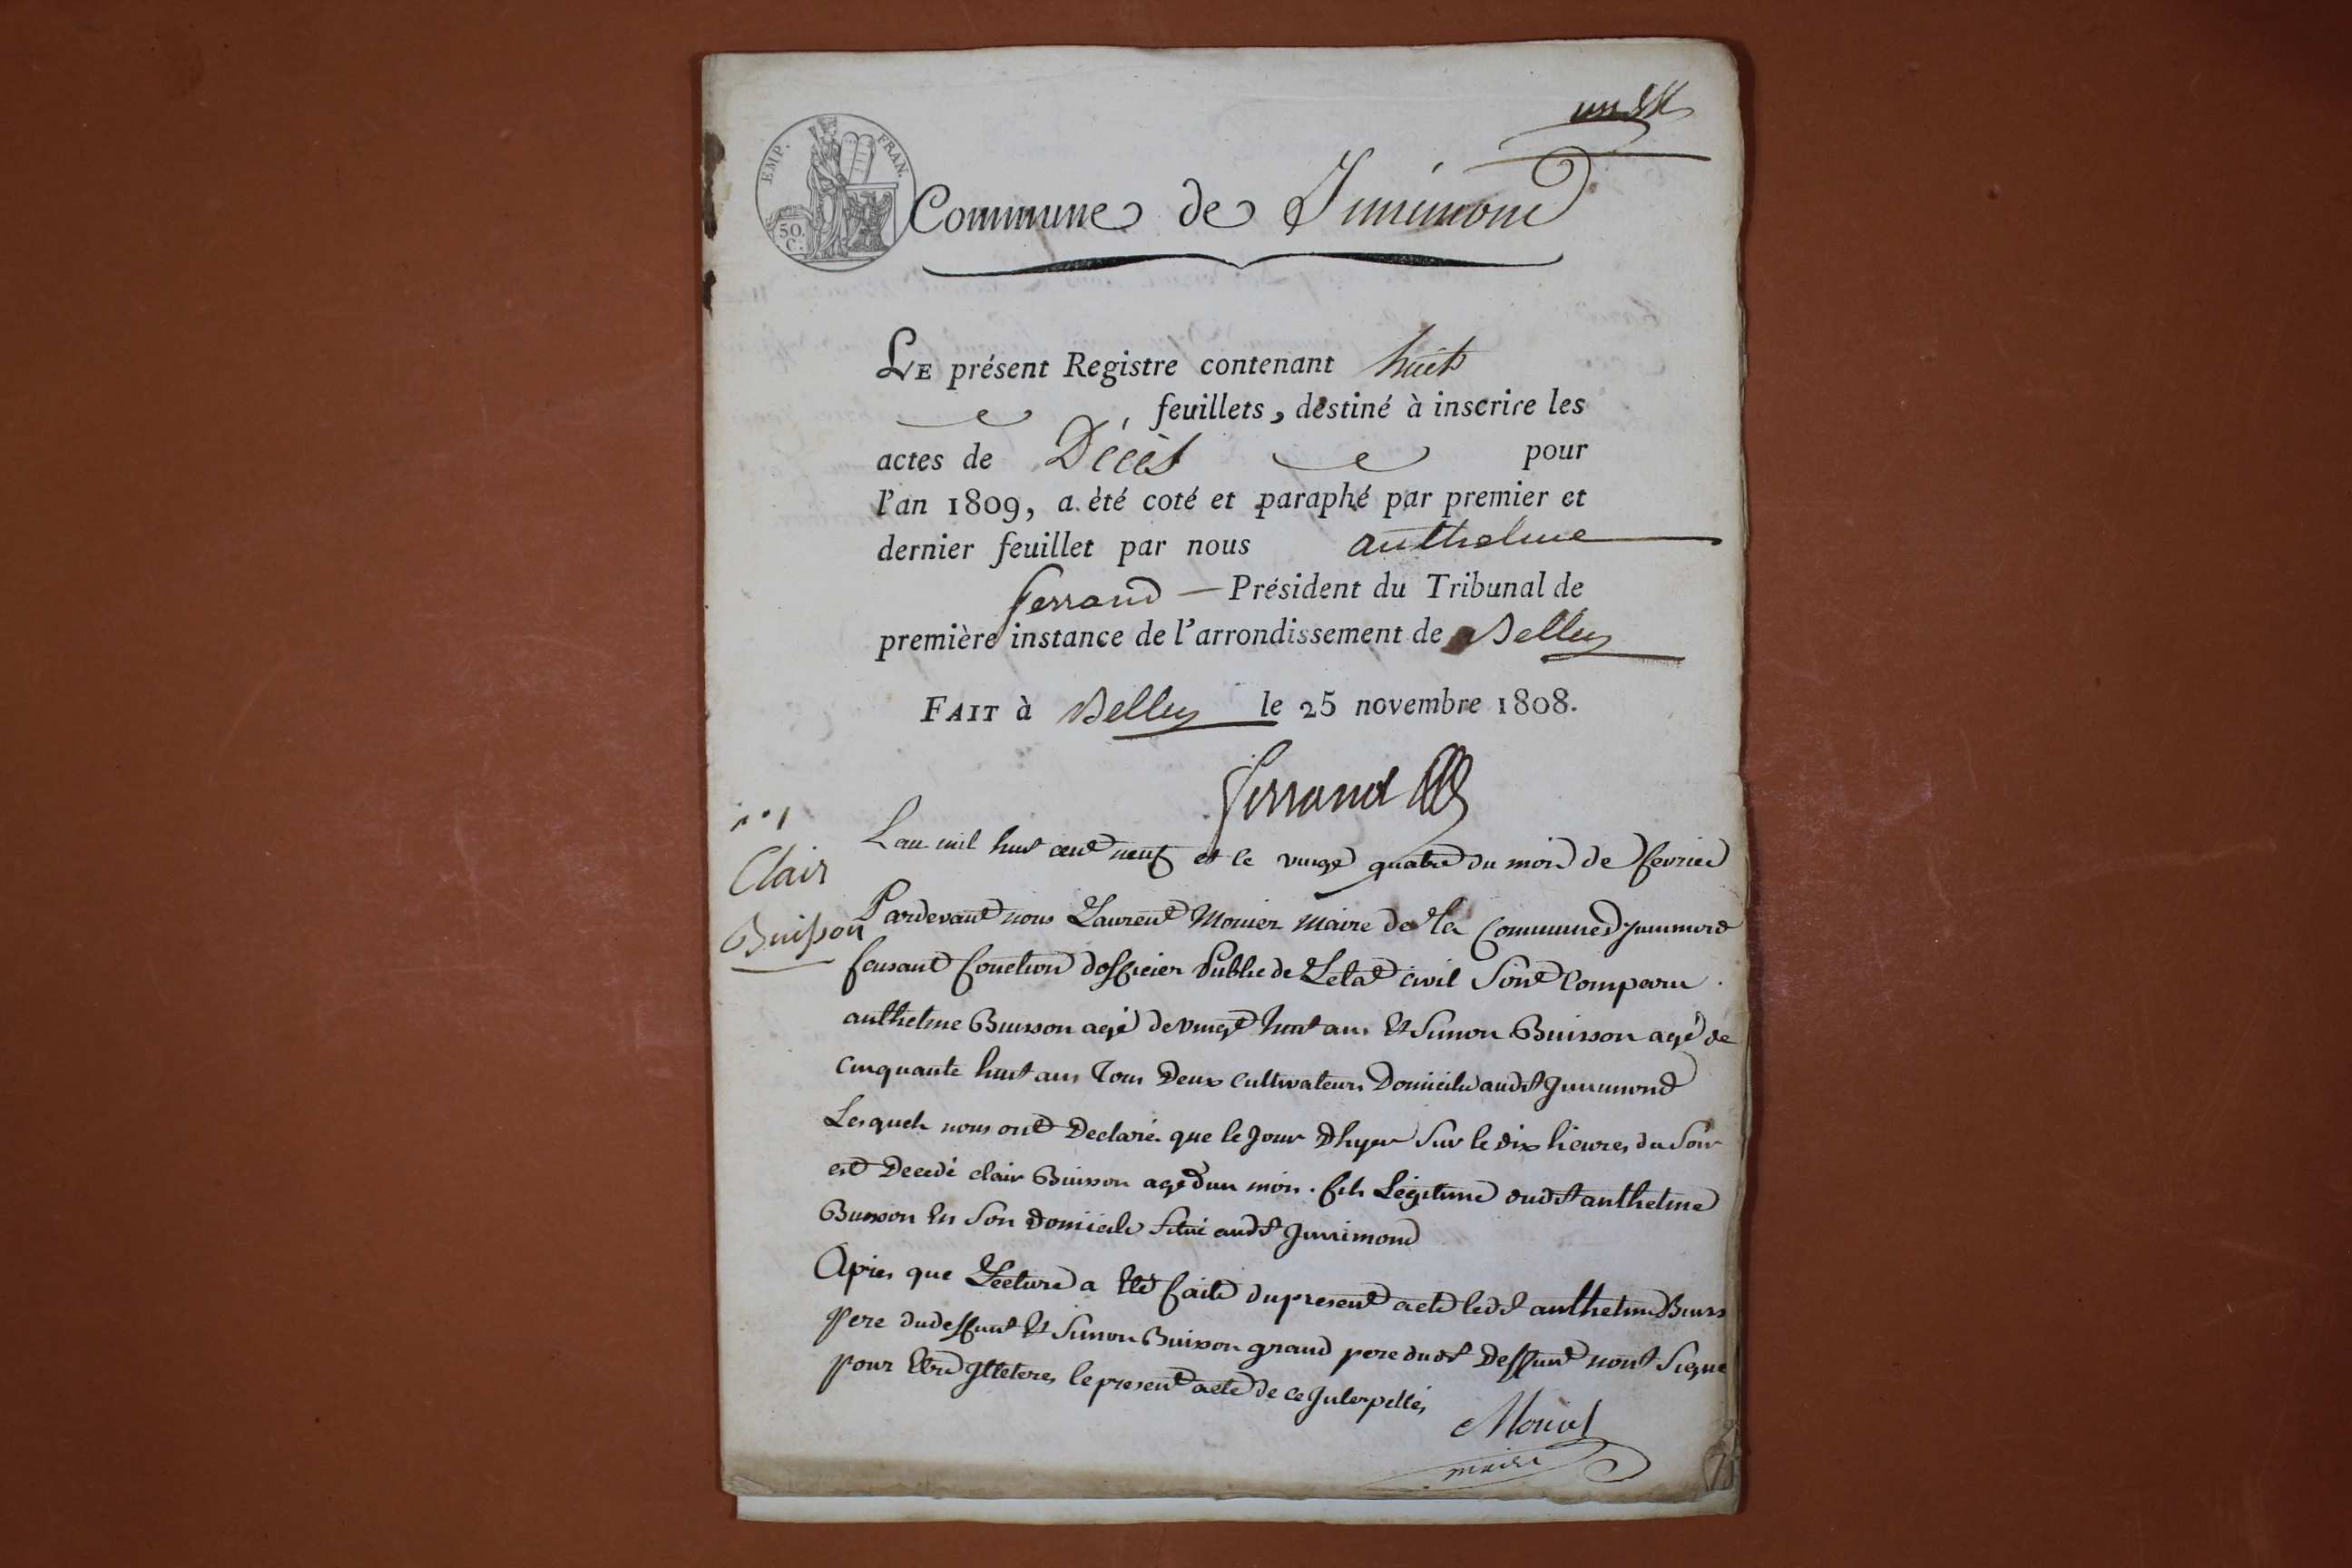 EMP. FRAN.
50.
C.
un
Commune de Jurimond
LE présent Registre contenant huit
feuillets, destiné à inscrire les
actes de Décès pour
l'an 1809, a été coté et paraphé par premier et
dernier feuillet par nous anthelme
ferrand — Président du Tribunal de
première instance de l'arrondissement de Belley
FAIT à Belley le 25 novembre 1808.
ferrand
n° 1
Clair
Buisson
Lan mil huit cent neuf et le vingt quatre du mois de fevrier
Pardevant nous Laurent Monier maire de la Commune
faisant fonction dofficier Public de Letat civil sont comparu
anthelme Buisson agé de vingt huit ans et Simon Buisson agé de
cinquante huit ans tous deux cultivateurs Domicilié audit Jurimond
Lesquels nous ont Declaré que le jour dhyer sur le dix heures du soir
est Decedé clair Buisson agé dun mois. fils Légitime dudt anthelme
Buisson en son domicile situé audt Jurimond
Après que Lecture a eté faite du present acte ledt anthelme Buiss
pere dudeffunt et Simon Buisson grand pere dudt Deffunt nont signé
pour etre Jlleteres le present acte de ce Interpellés
Monier
maire